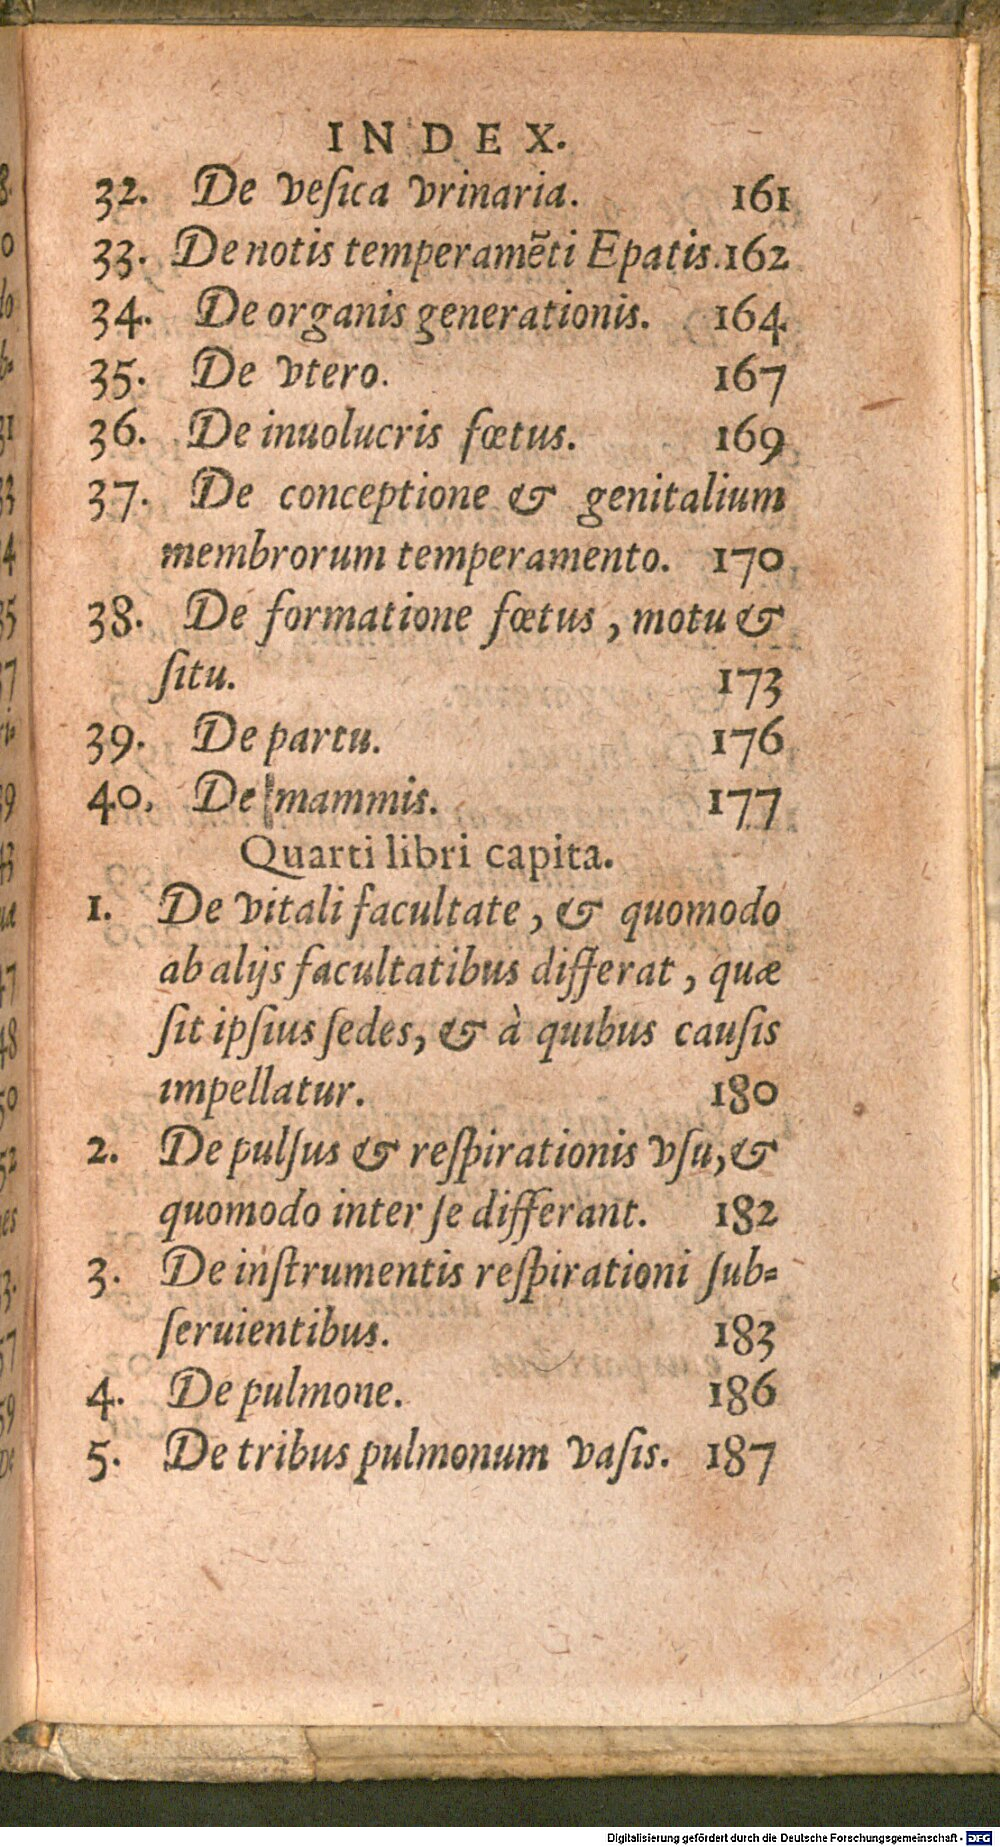 INDEX.
32. De vesica vrinaria. 161
33. De notis temperamẽti Epatis. 162
34. De organis generationis. 164
35. De vtero. 167
36. De inuolucris fœtus. 169
37. De conceptione & genitalium
membrorum temperamento. 170
38. De formatione fœtus, motu &
situ. 173
39. De partu. 176
40. De mammis. 177
Quarti libri capita.
1. De vitali facultate, & quomodo
ab alijs facultatibus differat, quæ
sit ipsius sedes, & à quibus causis
impellatur. 180
2. De pulsus & respirationis vsu, &
quomodo inter se differant. 182
3. De instrumentis respirationi sub-
seruientibus. 183
4. De pulmone. 186
5. De tribus pulmonum vasis. 187
Digitalisierung gefördert durch die Deutsche Forschungsgemeinschaft - DFG